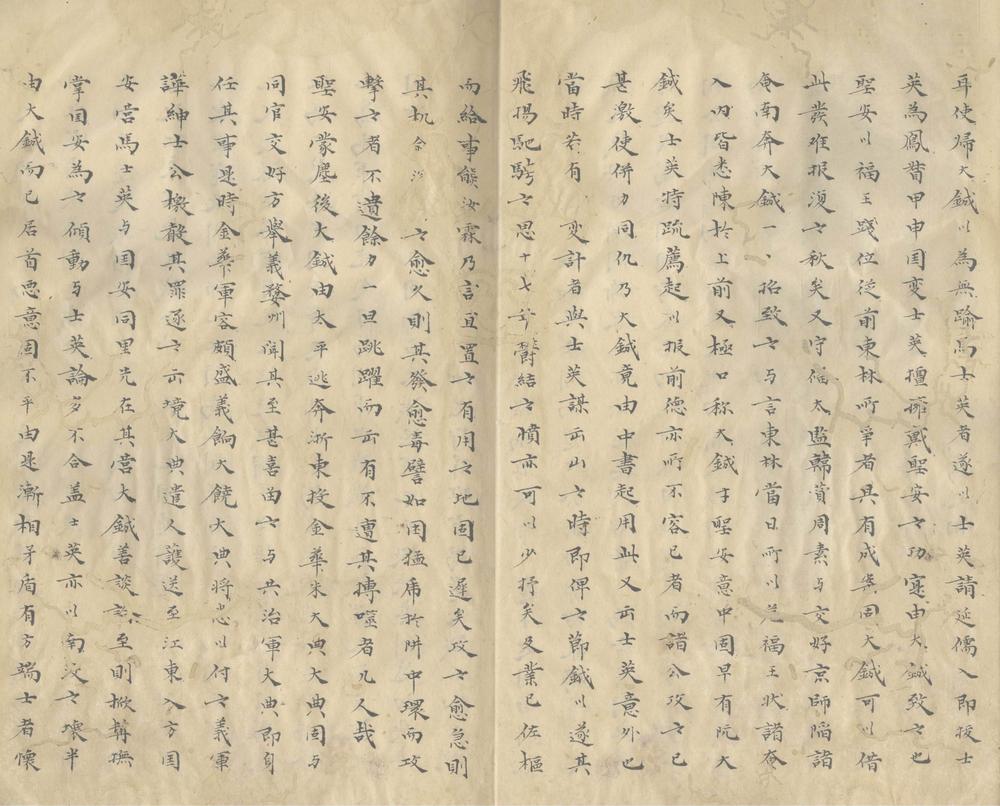 耳使歸大鋮以為無踰馬士英者遂以士英請延儒入即授士
英為鳳督甲申囯变士英擅擁戴聖安之功寔由大鋮致之也
聖安以福王踐位從前東林所爭者具有成案固大鋮可以借
此發难报復之秋矣又守俻太监韓賛周素与交好京師陷諸
奄南奔大鋮一一招致之与言東林當日所以危福王狀諸奄
入内皆悉陳於上前又極口称大鋮才聖安意中固早有阮大
鋮矣士英特疏薦起以报前德亦所不容已者而諸公攻之已
甚激使併力同仇乃大鋮竟由中書起用此又出士英意外也
當時若有　变計者與士英謀出山之時即俾之節鋮以遂其
飛揚馳騁之思十七年欝結之憤亦可以少抒矣及業已佐樞
而給事熊汝霖乃言宜置之有用之地固已遲矣攻之愈急則
其机　之愈久則其發愈毒譬如困猛虎於阱中環而攻
擊之者不遺餘力一旦跳躍而出有不遭其搏噬者几人哉
聖安蒙塵後大鋮由太平逃奔浙東投金華朱大典大典固与
同官交好方舉義婺州聞其至甚喜曲之与共治軍大典即身
任其事是時金華軍容頗盛義餉大饒大典將悉以付之義軍
譁紳士公檄殽其罪逐之出境大典遣人護送至江東入方囯
安营馬士英与囯安同里先在其营大鋮善談説至則掀髯撫
掌囯安為之傾動与士英論多不合盖士英亦以南渡之壊半
由大鋮而已居首悪意固不平由是漸相矛盾有方端士者懐